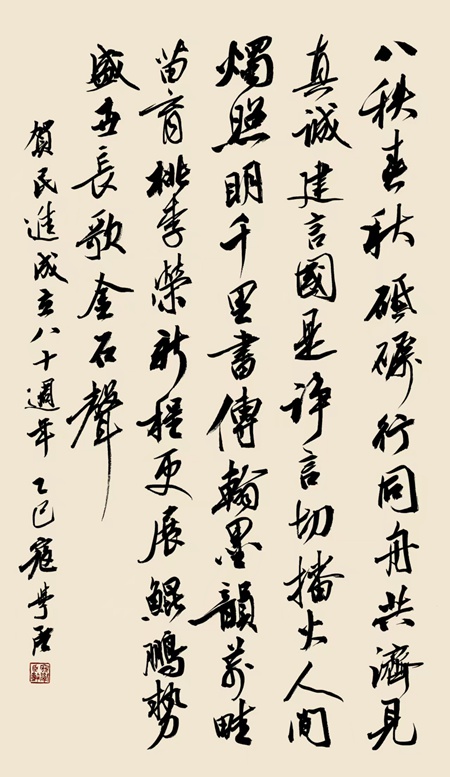 八秩春秋砥礪行同舟共濟見
真誠建言國是諍言切播火人間
燭照明千里書傳翰墨韻萬畦
苗育桃李榮新程更展鯤鵬勢
盛世長歌金石聲
賀民進成立八十週年 乙巳寇學臣